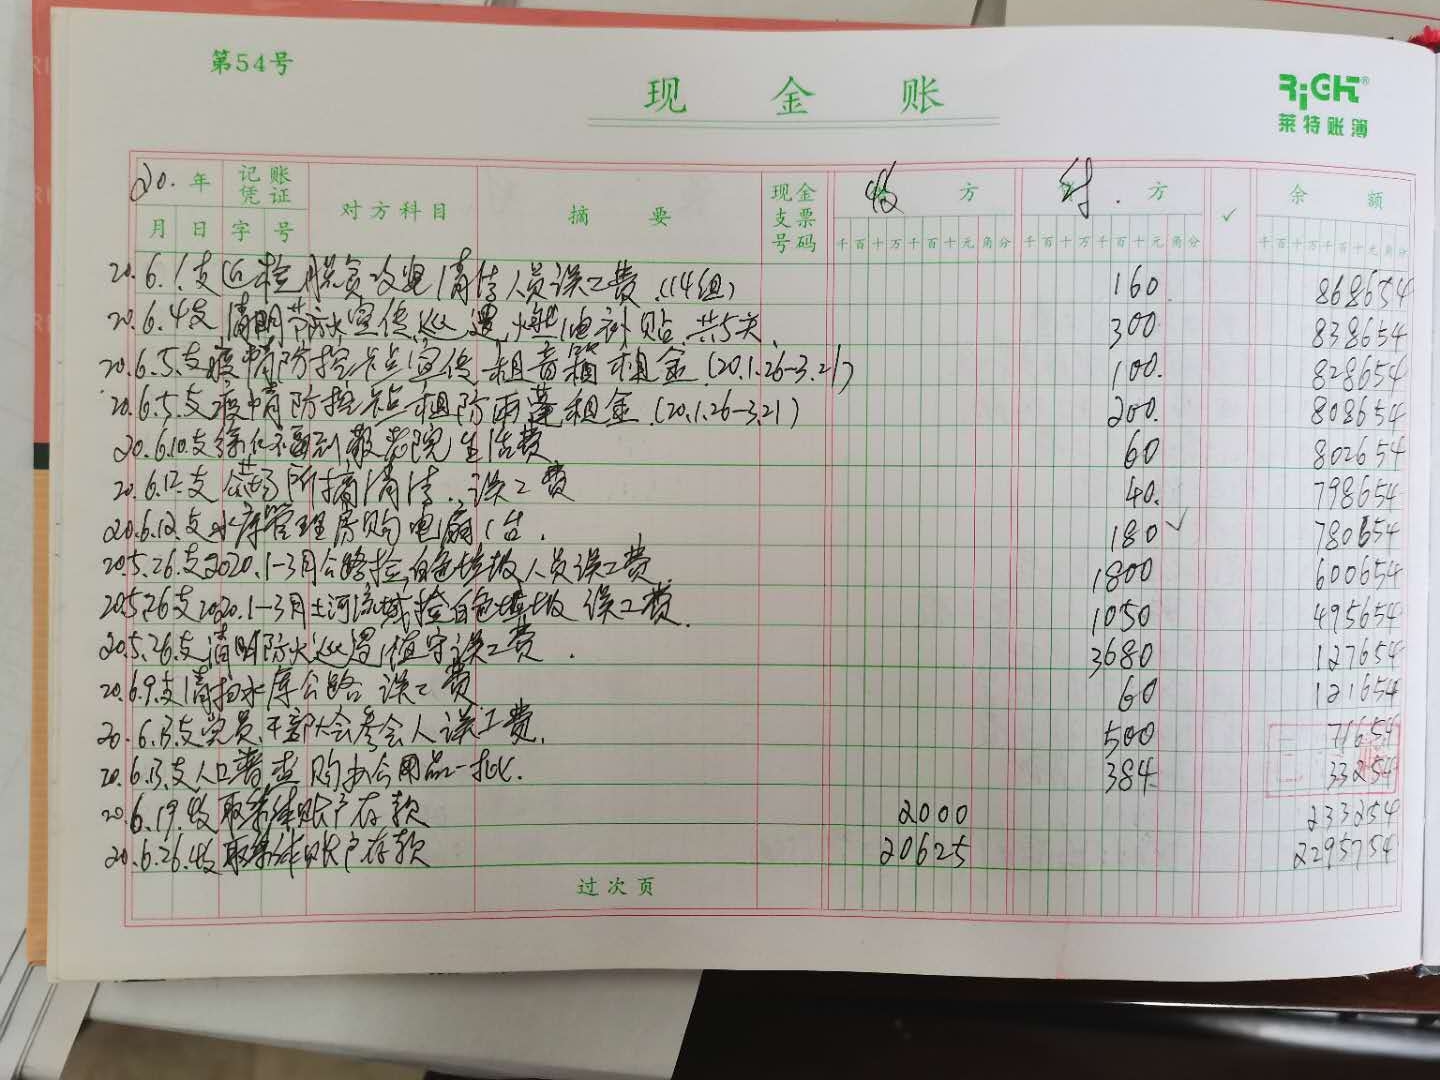 第54号
现 金 账
RiGHT®
莱特账簿
20. 年 记账凭证 对方科目 摘 要 现金支票号码 收 方 付. 方 ✓ 余 额
月 日 字 号 千百十万千百十元角分 千百十万千百十元角分 千百十万千百十元角分
20.6.1.支迎检脱贫攻坚清洁人员误工费.(14组) 160 868654
20.6.4支清明节防火宣传巡逻燃油补贴.共5天. 300 838654
20.6.5.支疫情防控卡点宣传租音箱租金.(20.1.26-3.21) 100. 828654
20.6.5.支疫情防控卡点租防雨蓬租金.(20.1.26-3.21) 200. 808654
20.6.10.支 到敬老院生活费 60 802654
20.6.12.支 误工费 40. 798654
20.6.12.支水库管理房购电扇1台. 180 ✓ 780654
20.5.26.支2020.1-3月公路捡白色垃圾人员误工费. 1800 600654
20.5.26支2020.1-3月土河流域捡白色垃圾误工费. 1050 495654
20.5.26.支清明防火巡逻值守误工费. 3680 127654
20.6.9.支清扫水库公路误工费 60 121654
20.6.13.支党员.干部大会参会人误工费. 500 71654
20.6.13.支人口普查购办公用品一批. 384. 33254
20.6.19.收取集体账户存款 2000 233254
20.6.26.收取集体账户存款 20625 2295754
过次页